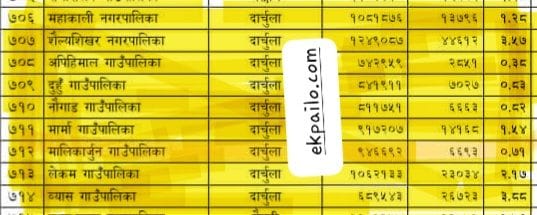 ७०६ महाकाली नगरपालिका दार्चुला १०८१८७६ १३७९६ १.२८
७०७ शैल्यशिखर नगरपालिका दार्चुला १२४९०८७ ४४६१२ ३.५७
७०८ अपिहिमाल गाउँपालिका दार्चुला ७४२९५९ २८५१ ०.३८
७०९ दुहुँ गाउँपालिका दार्चुला ८४१९११ ७०२७ ०.८३
७१० नौगाड गाउँपालिका दार्चुला ८११७५१ ६६६३ ०.८२
७११ मार्मा गाउँपालिका दार्चुला ९१७२०७ १४१६८ १.५४
७१२ मालिकार्जुन गाउँपालिका दार्चुला ९४६६९२ ६६९३ ०.७१
७१३ लेकम गाउँपालिका दार्चुला १०६२१३३ २३०३४ २.१७
७१४ ब्यास गाउँपालिका दार्चुला ६८९५४३ २६७२३ ३.८८
ekpailo.com